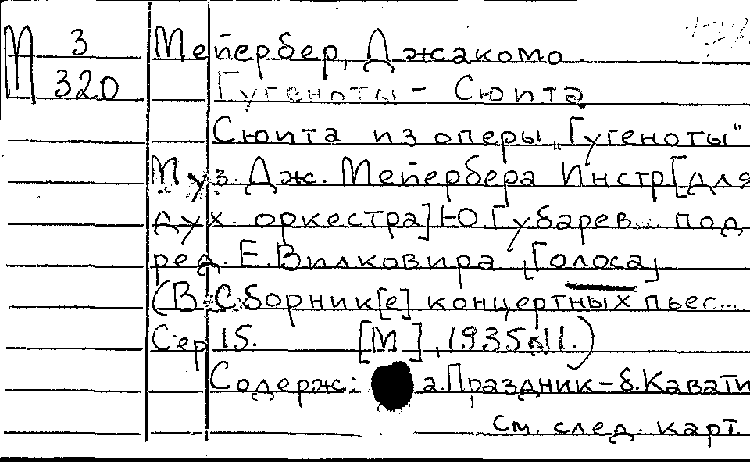 М 3 Мейербер, Джакомо.
320 Гугеноты - Сюита
Сюита из оперы „Гугеноты"
Муз. Дж. Мейербера Инстр[для
дух. оркестра] Ю. Губарев под
ред. Е. Вилковира [Голоса]
(В: Сборник[е] концертных пьес...
Сер 15. [М], 1935 11.)
Содерж: а. Праздник - б. Кавати
См. след. карт.